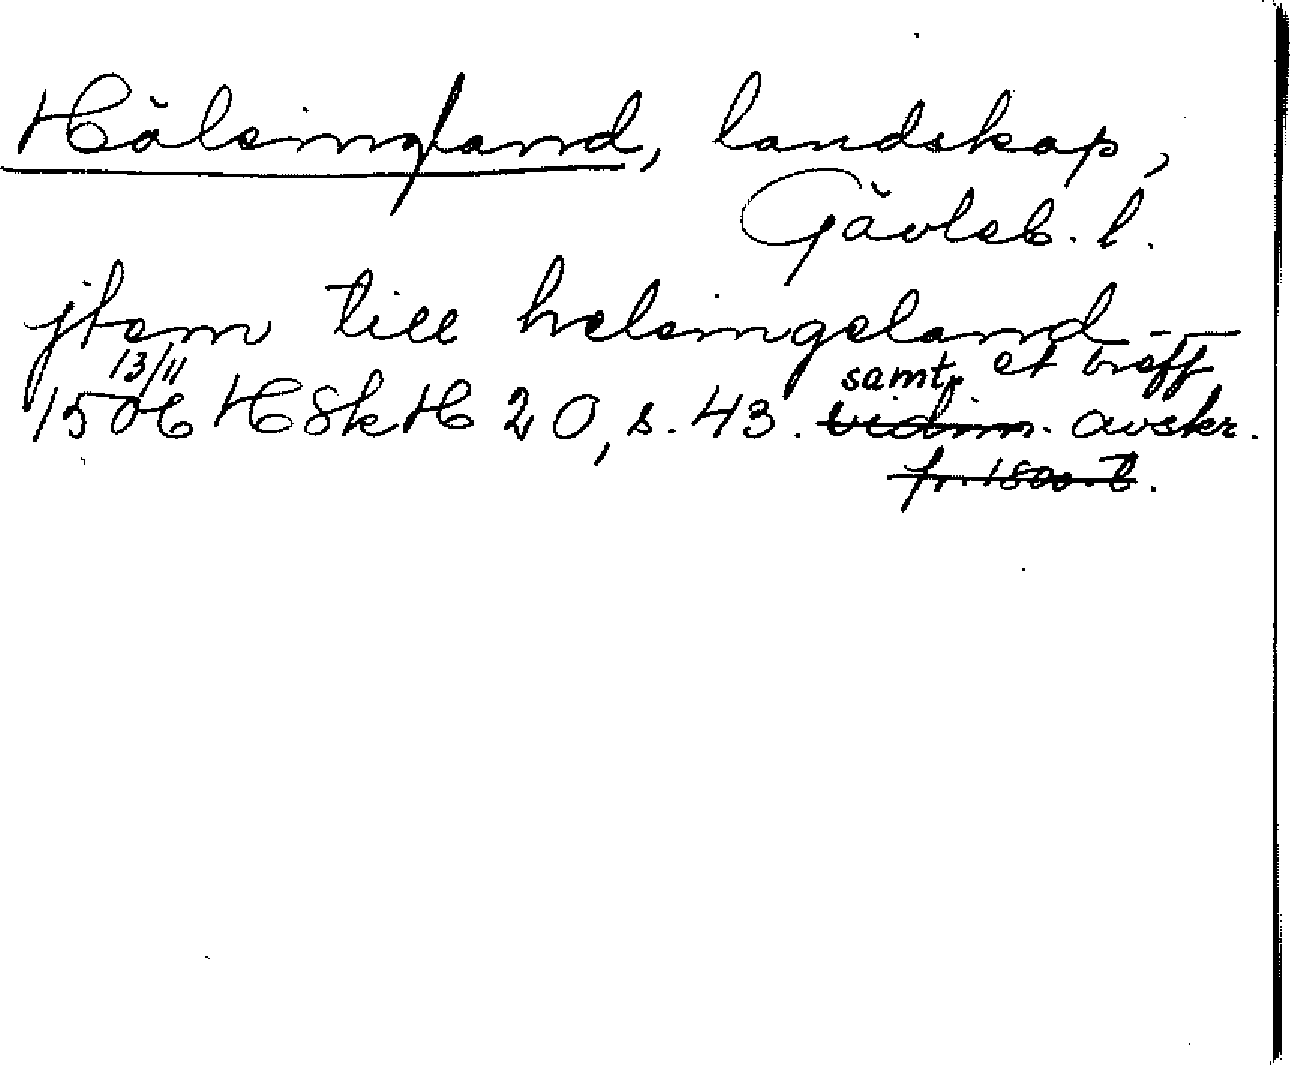 Hälsingland, landskap,
Gävleb. l.
jtem till helsingeland --
et breff
13/11 samt.
1506 HSkH 20, s. 43. vidim. avskr.
fr. 1800-t.